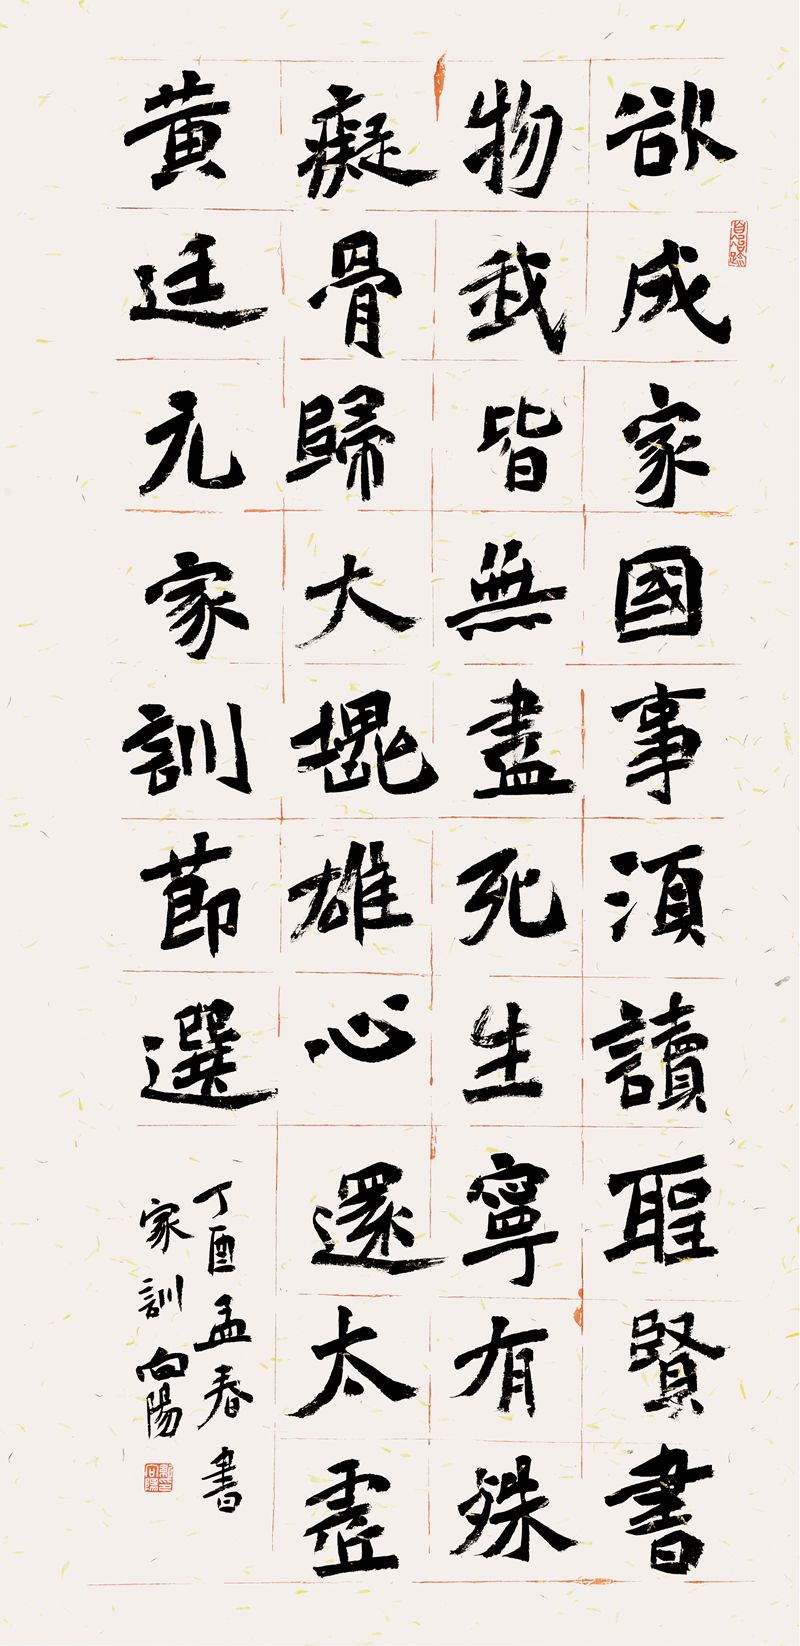 欲成家國事須讀聖賢書
物我皆無盡死生寧有殊
癡骨歸大塊雄心還太虛
黃廷元家訓節選
丁酉孟春書
家訓向陽